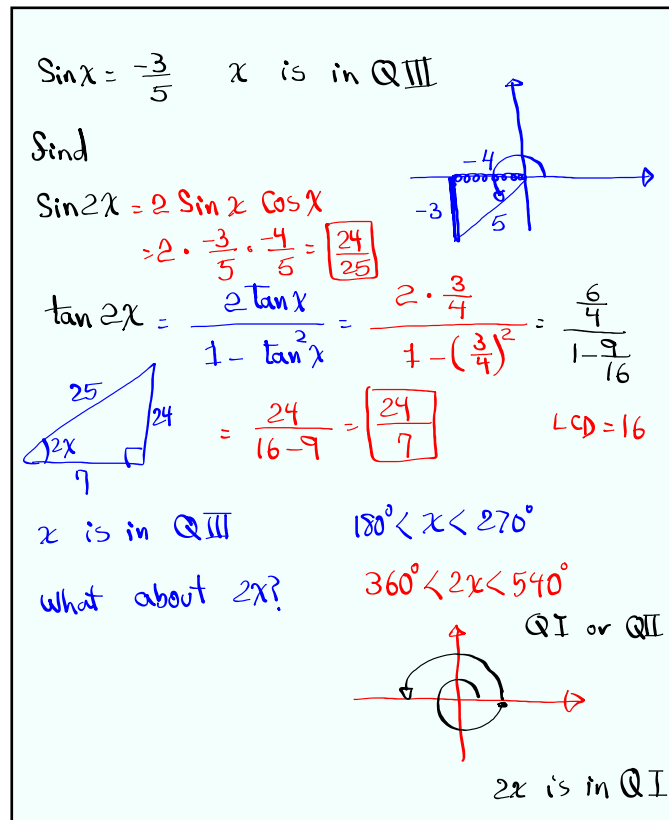 Sinx = -3/5 x is in QIII
find
-4
-3
5
Sin2x = 2 Sinx Cosx
= 2 · -3/5 · -4/5 = 24/25
tan 2x = 2tanx/(1 - tan²x) = (2 · 3/4)/(1 - (3/4)²) = (6/4)/(1 - 9/16)
25
24
2x
7
= 24/(16-9) = 24/7 LCD = 16
x is in QIII 180° < x < 270°
what about 2x? 360° < 2x < 540°
QI or QII
2x is in QI